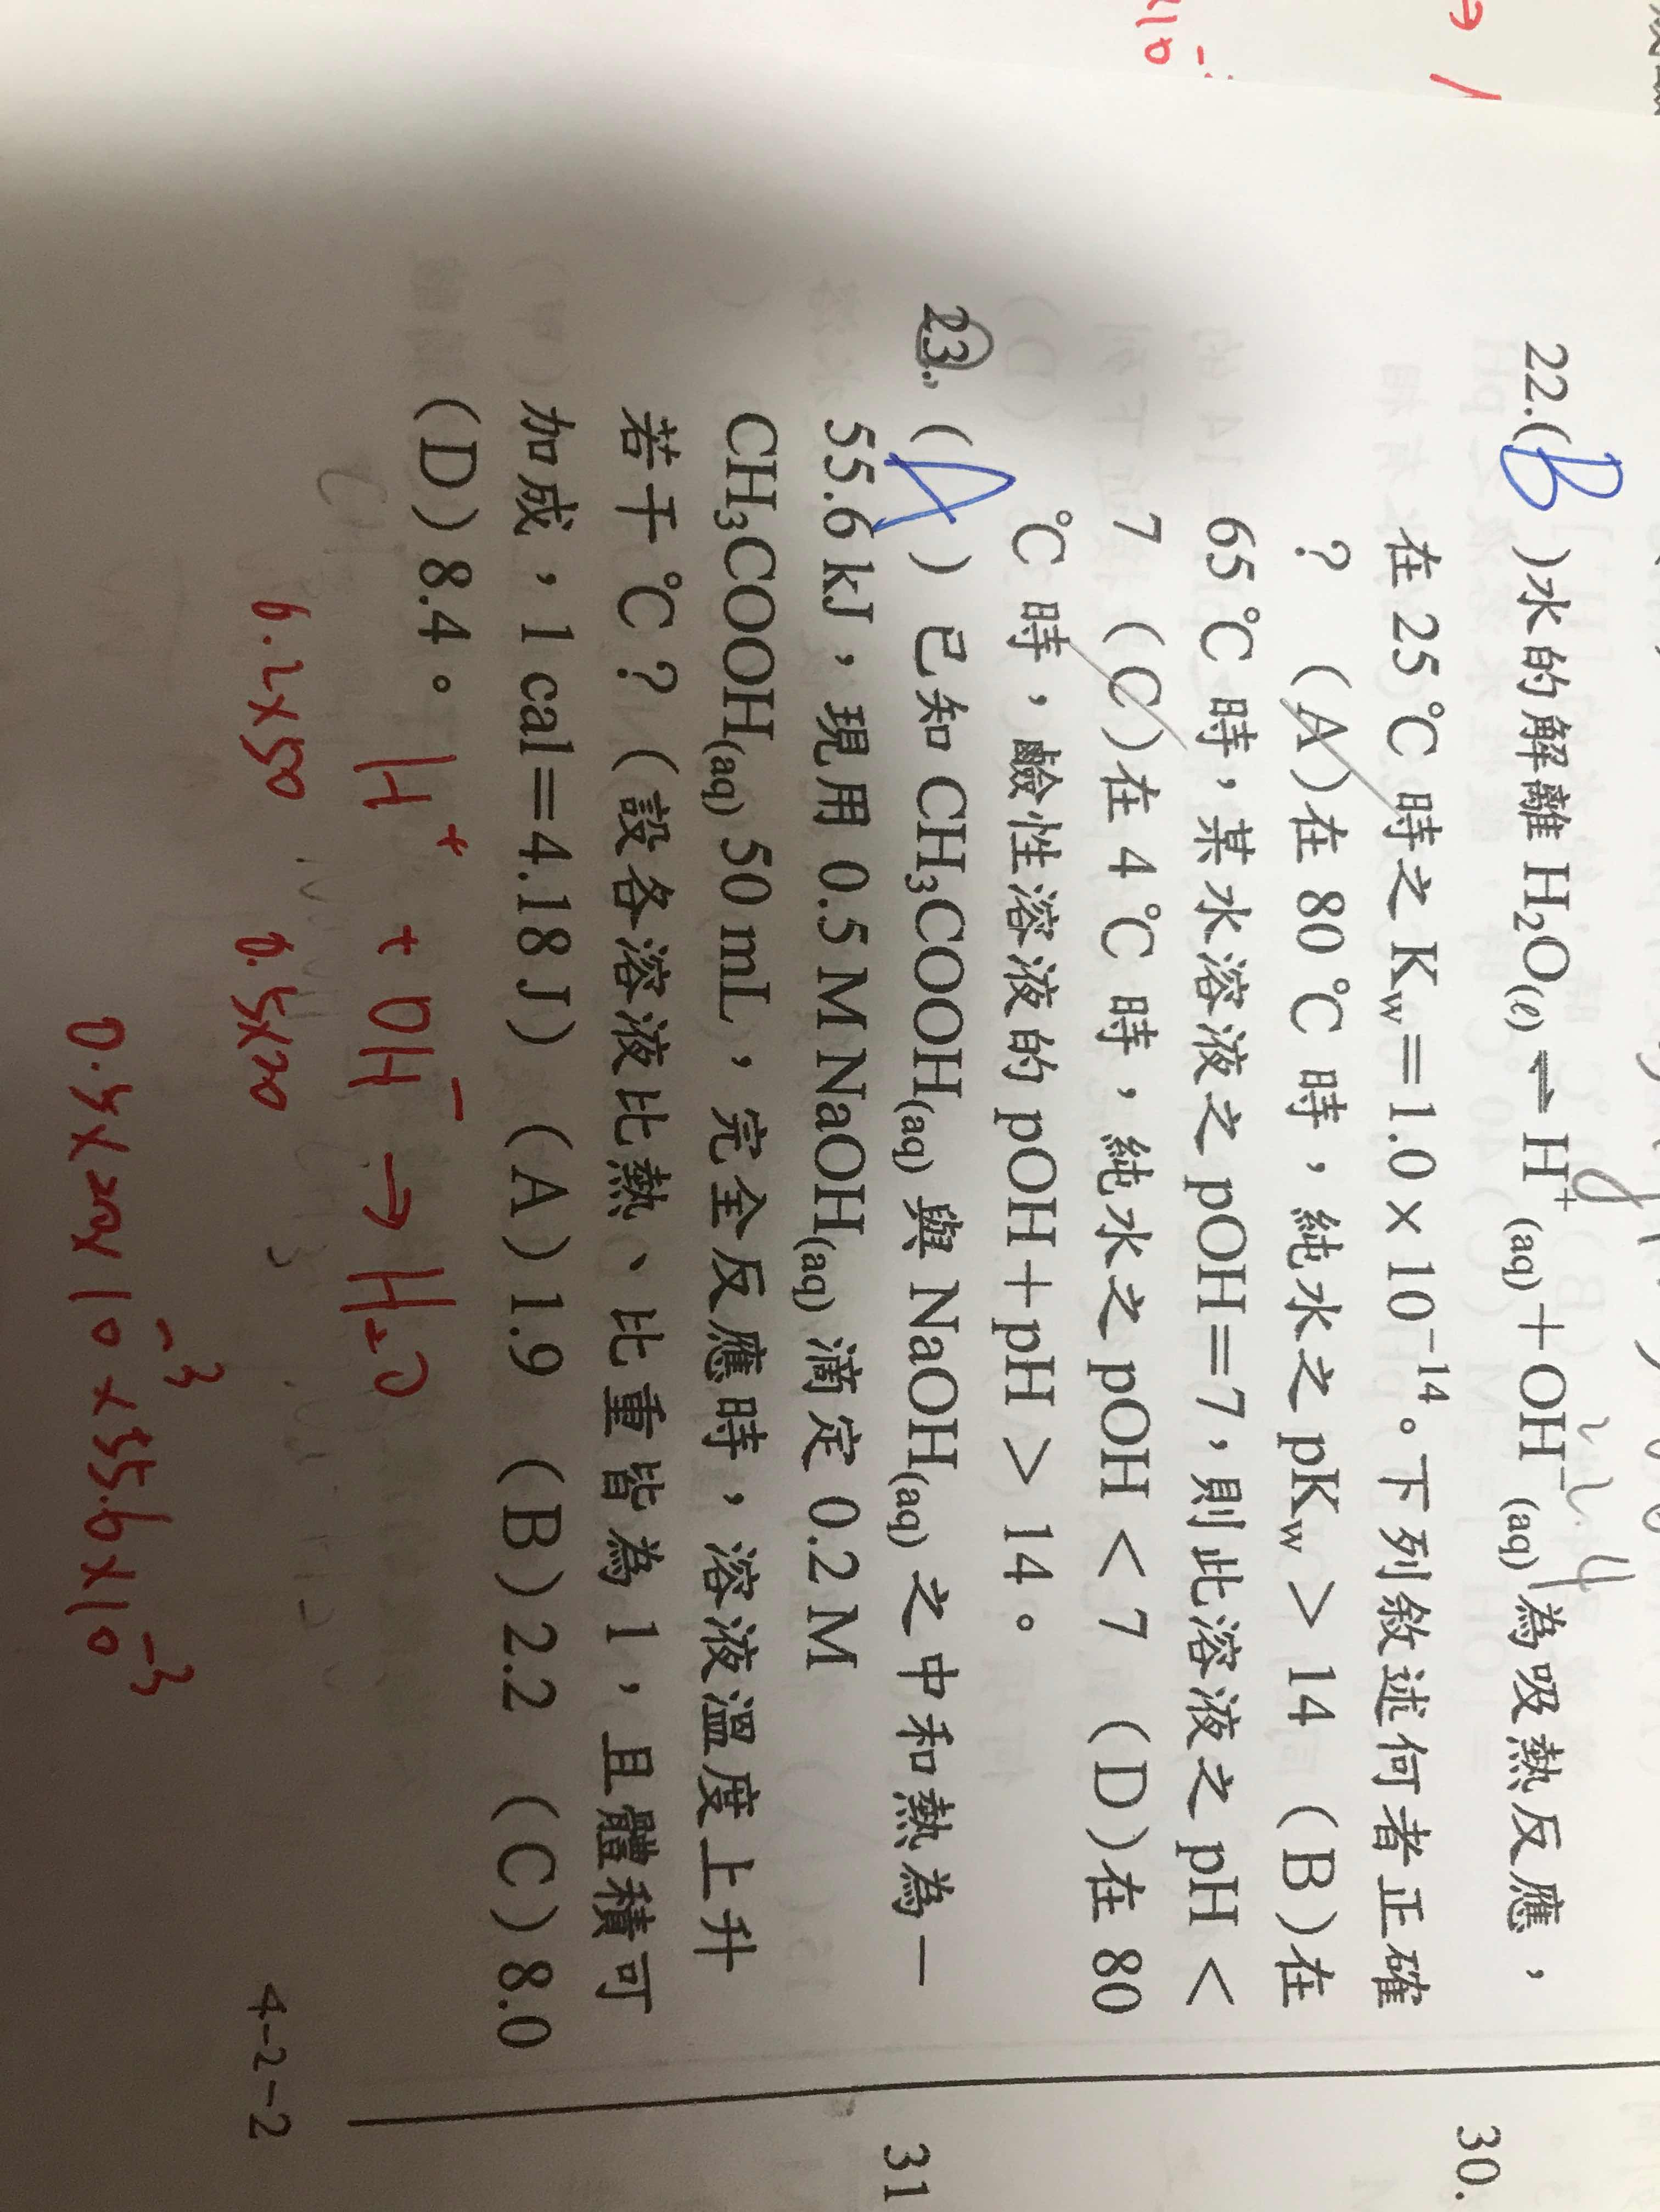 22.(B)水的解離 H₂O(ℓ) ⇌ H⁺(aq)+OH⁻(aq)為吸熱反應，
在 25 ℃ 時之 Kw＝1.0 × 10⁻¹⁴。下列敘述何者正確
？ (A)在 80 ℃ 時，純水之 pKw > 14 (B)在
65 ℃ 時，某水溶液之 pOH＝7，則此溶液之 pH <
7 (C)在 4 ℃ 時，純水之 pOH < 7 (D)在 80
℃ 時，鹼性溶液的 pOH＋pH > 14。
23.(A) 已知 CH₃COOH(aq) 與 NaOH(aq) 之中和熱為－
55.6 kJ，現用 0.5 M NaOH(aq) 滴定 0.2 M
CH₃COOH(aq) 50 mL，完全反應時，溶液溫度上升
若干 ℃？（設各溶液比熱、比重皆為 1，且體積可
加成，1 cal＝4.18 J） (A)1.9 (B)2.2 (C)8.0
(D)8.4。
H⁺ + OH⁻ → H₂O
0.2×50 0.5×20
0.5×20×10⁻³×55.6×10⁻³
4-2-2
30.
31